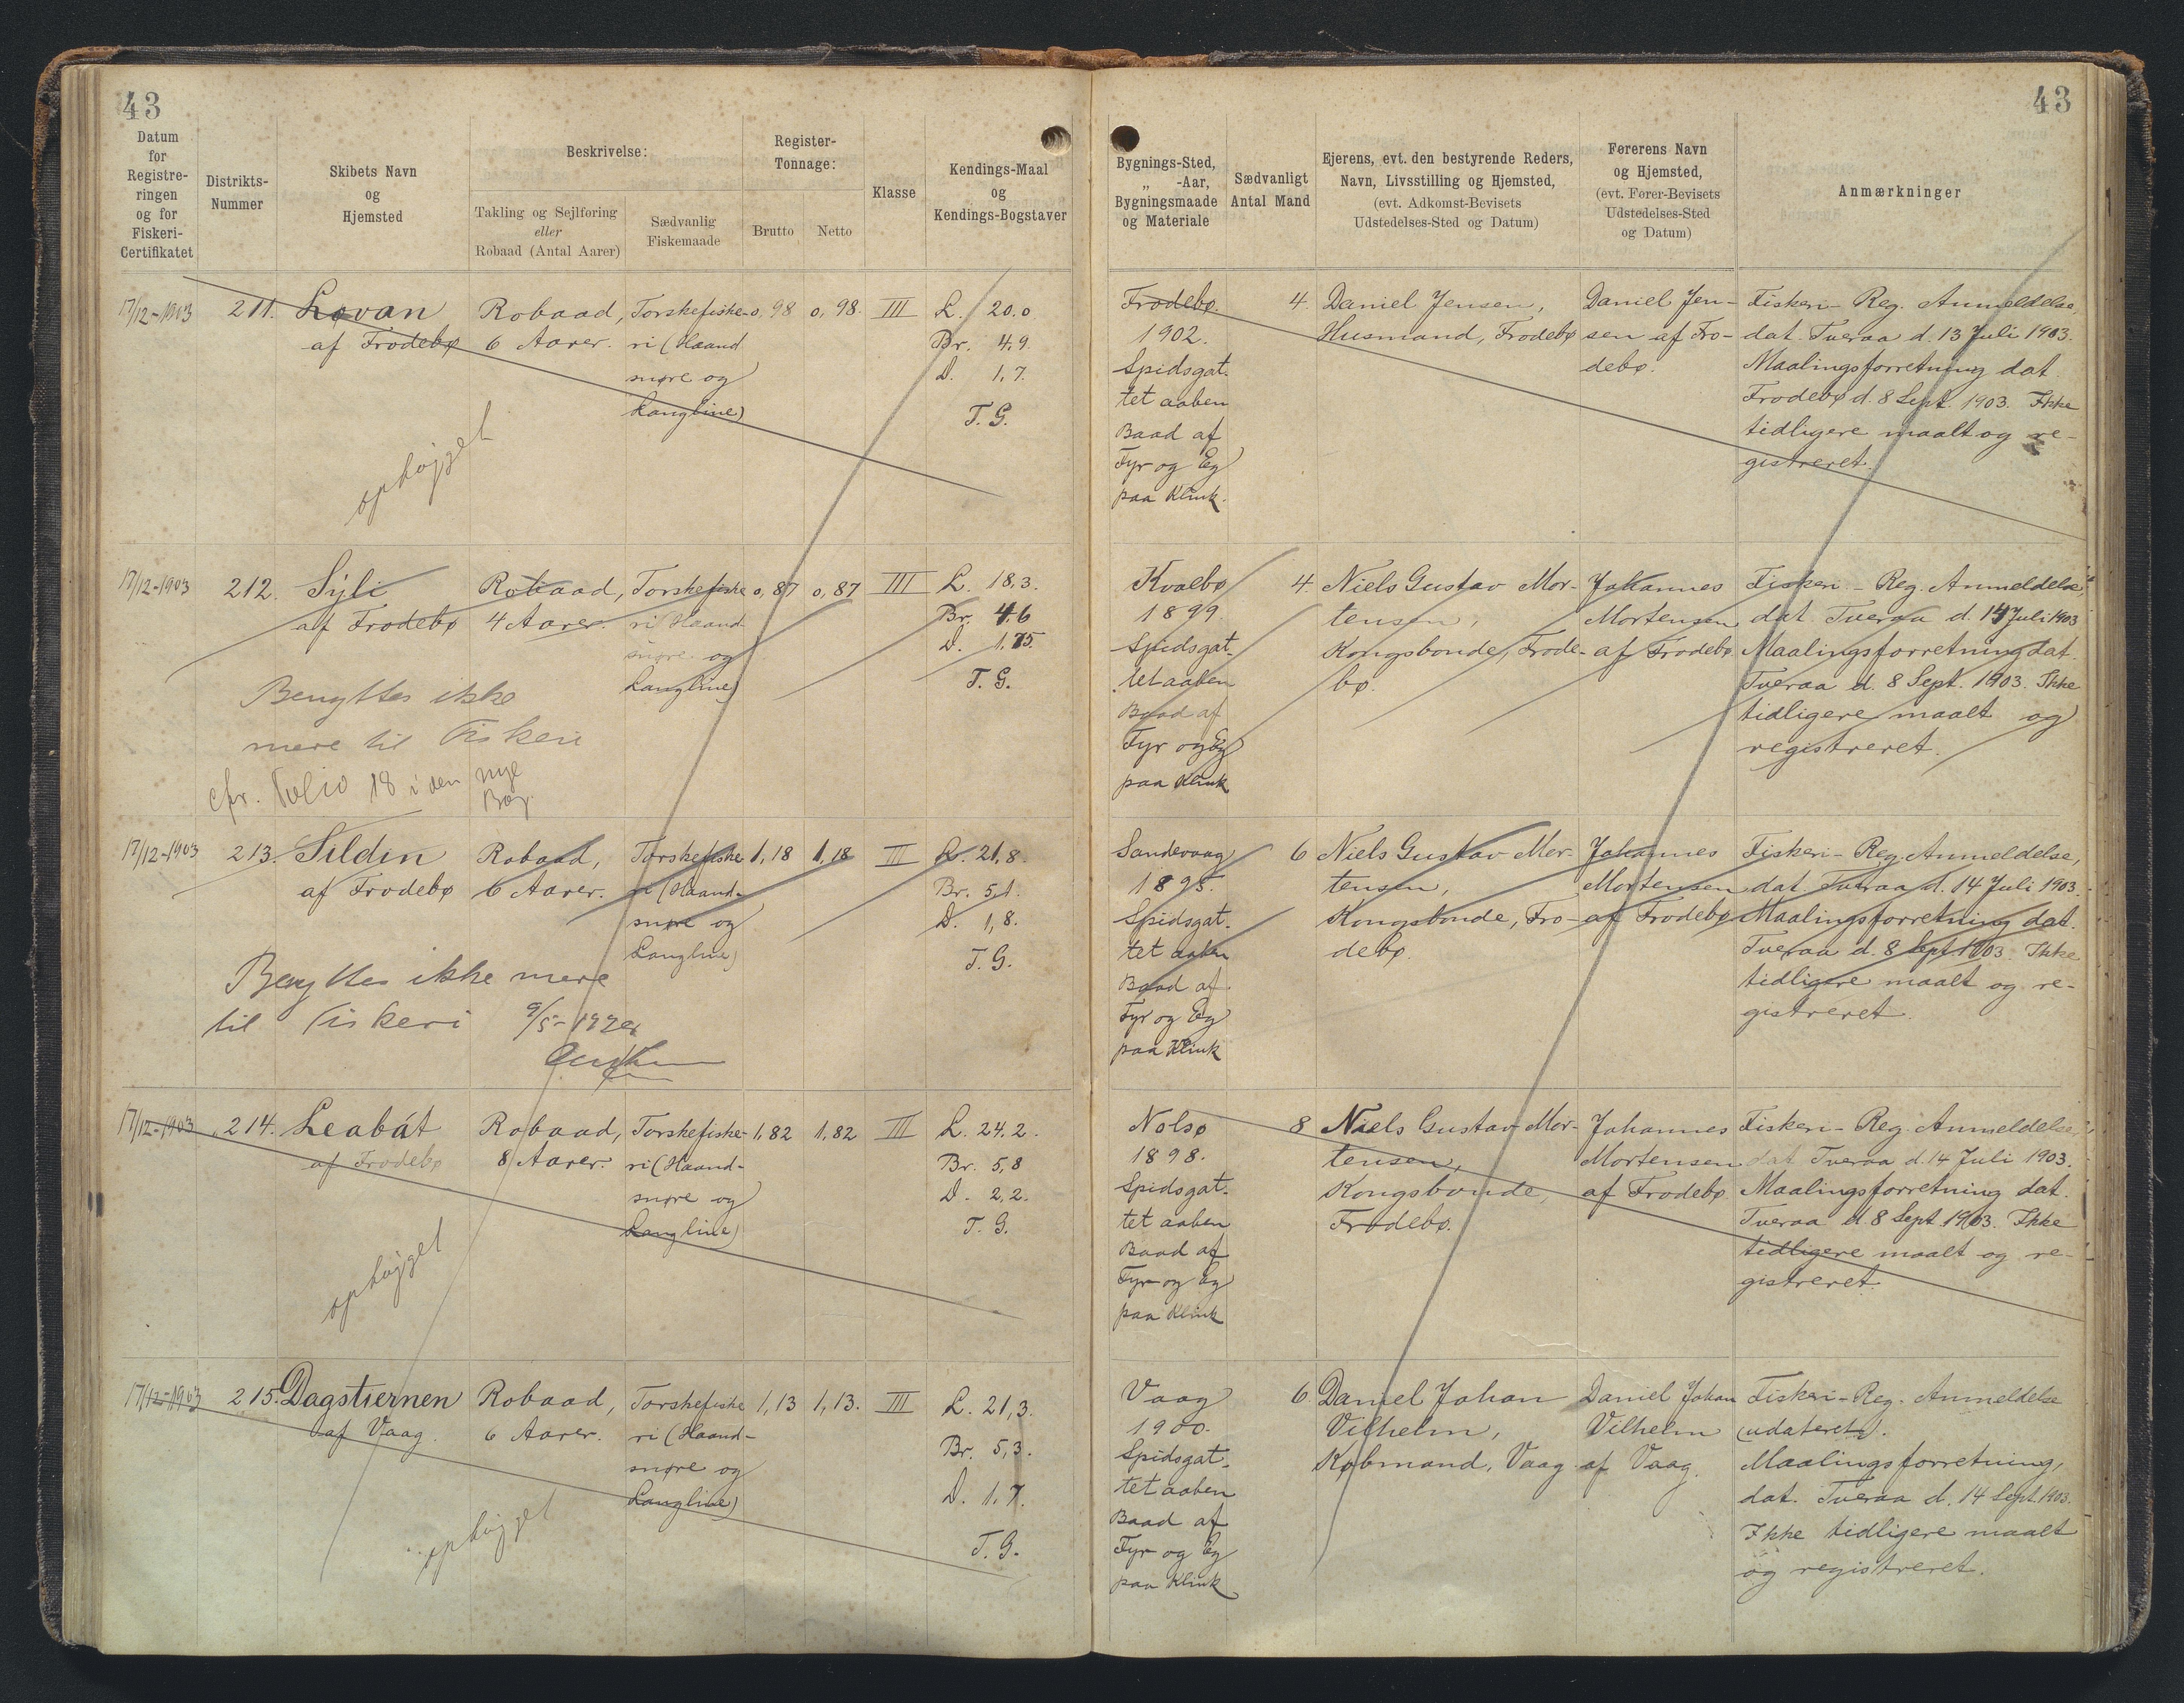 43
43
Datum
for
Registre-
ringen
og for
Fiskeri-
Certifikatet
Distrikts-
Nummer
Skibets Navn
og
Hjemsted
Beskrivelse:
Takling og Sejlføring
eller
Robaad (Antal Aarer)
Sædvanlig
Fiskemaade
Register-
Tonnage:
Brutto
Netto
Klasse
Kendings-Maal
og
Kendings-Bogstaver
Bygnings-Sted,
„ -Aar,
Bygningsmaade
og Materiale
Sædvanligt
Antal Mand
Ejerens, evt. den bestyrende Reders,
Navn, Livsstilling og Hjemsted,
(evt. Adkomst-Bevisets
Udstedelses-Sted og Datum)
Førerens Navn
og Hjemsted,
(evt. Fører-Bevisets
Udstedelses-Sted
og Datum)
Anmærkninger
17/12-1903
211.
Lovan
af Frodebø
Robaad,
6 Aarer.
Torskefiske-
ri (Haand
snøre og
Langline)
0,98
0,98.
III
L. 20.0
Br. 4,9.
D. 1,7.
T. G.
Frodebø.
1902.
Spidsgat-
tet aaben
Baad af
Fyr og Eg
paa Klink.
4.
Daniel Jensen,
Husmand, Frodebø
Daniel Jen-
sen af Fro-
debø.
Fiskeri-Reg. Anmeldelse,
dat. Tveraa d. 13 Juli 1903.
Maalingsforretning dat.
Frodebø d. 8 Sept. 1903. Ikke
tidligere maalt og re-
gistreret.
ophøjget
17/12-1903
212.
Sýli
af Frodebø
Robaad,
4 Aarer.
Torskefiske
ri (Haand
snøre og
Langline)
0,87
0,87
III
L. 18,3.
Br. 4,6
D. 1,75.
T. G.
Kvalbø
1899.
Spidsgat-
tet aaben
Baad af
Fyr og Eg
paa Klink
4.
Niels Gustav Mor-
tensen,
Kongsbonde, Frode-
bø.
Johannes
Mortensen
af Frodebø
Fiskeri-Reg. Anmeldelse,
dat. Tveraa d. 14 Juli 1903
Maalingsforretning dat.
Tveraa d. 8 Sept. 1903. Ikke
tidligere maalt og
registreret.
Benyttes ikke
mere til Fiskeri
cfr. Folio 18 i den nye
Bog.
17/12-1903
213.
Sildin
af Frodebø
Robaad,
6 Aarer.
Torskefiske
ri (Haand-
snøre og
Langline)
1,18
1,18
III
L. 21,8.
Br. 5,1.
D. 1,8.
T. G.
Sandevaag
1895.
Spidsgat-
tet aaben
Baad af
Fyr og Eg
paa Klink
6
Niels Gustav Mor-
tensen,
Kongsbonde, Fro-
debø.
Johannes
Mortensen
af Frodebø
Fiskeri-Reg. Anmeldelse,
dat. Tveraa d. 14 Juli 1903.
Maalingsforretning dat.
Tveraa d. 8 Sept. 1903. Ikke
tidligere maalt og re-
gistreret.
Benyttes ikke mere
til Fiskeri 9/5-
17/12-1903
214.
Leabát
af Frodebø
Robaad,
8 Aarer.
Torskefiske-
ri (Haand-
snøre og
Langline)
1,82
1,82
III
L. 24,2.
Br. 5,8
D. 2,2.
T. G.
Nolsø
1898.
Spidsgat-
tet aaben
Baad af
Fyr og Eg
paa Klink
8
Niels Gustav Mor-
tensen,
Kongsbonde,
Frodebø.
Johannes
Mortensen
af Frodebø
Fiskeri-Reg. Anmeldelse,
dat Tveraa d. 14 Juli 1903.
Maalingsforretning dat.
Tveraa d. 8 Sept. 1903. Ikke
tidligere maalt og re-
gistreret.
ophøjget
17/12-1903
215.
Dagstiernen
af Vaag.
Robaad,
6 Aarer.
Torskefiske
ri (Haand-
snøre og
Langline)
1,13
1,13.
III
L. 21,3.
Br. 5,3.
D. 1,7.
T. G.
Vaag
1900.
Spidsgat-
tet aaben
Baad af
Fyr og Eg
paa Klink
6
Daniel Johan
Vilhelm,
Købmand, Vaag
Daniel Johan
Vilhelm
af Vaag.
Fiskeri-Reg. Anmeldelse
(udateret).
Maalingsforretning,
dat. Tveraa d. 14 Sept. 1903.
Ikke tidligere maalt
og registreret.
ophøjget